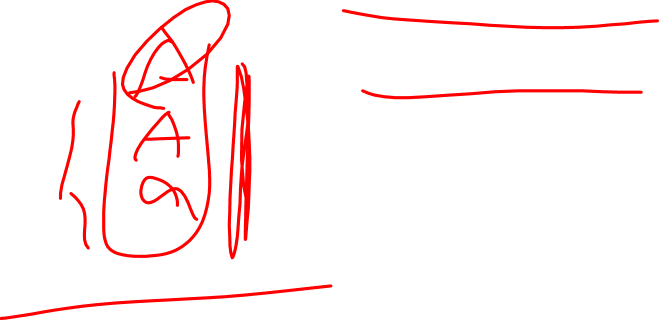 A
A
a